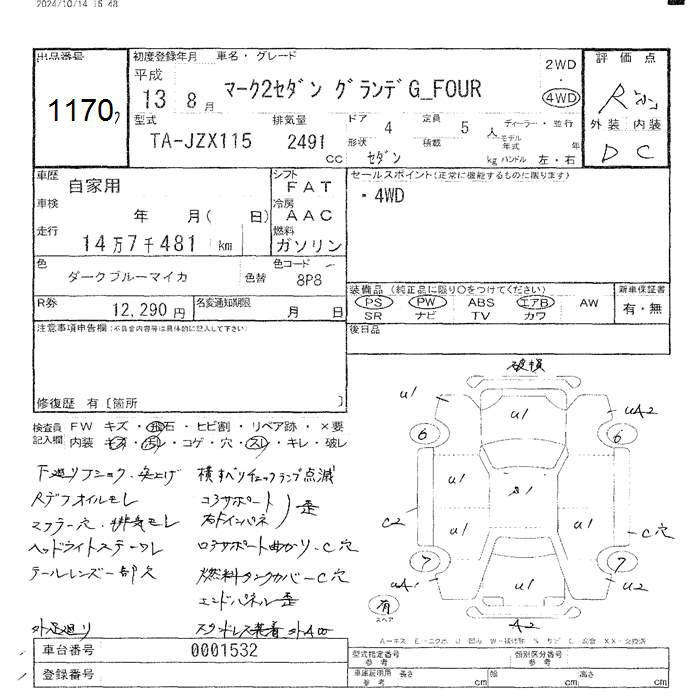 2024/10/14 15:48
出品番号
1170
初度登録年月 車名・グレード
平成
13年 8月 マーク2セダン グランデG_FOUR
2WD
・
4WD
評価点
R
外装 内装
D C
型式 排気量 ドア 4 定員 5人 ディーラー・並行
TA-JZX115 2491 cc 形状 セダン 積載 kg モデル年式 年 ハンドル 左・右
車歴 自家用
シフト FAT
車検 年 月( 日)
冷房 AAC
走行 14万7千481 km
燃料 ガソリン
色 ダークブルーマイカ 色替
色コード 8P8
R券 12,290円 名変通知期限 月 日
セールスポイント(正常に機能するものに限ります)
・4WD
装備品 (純正品に限り○をつけてください)
PS PW ABS エアB AW
SR ナビ TV カワ
新車保証書
有・無
後日品
注意事項申告欄(不具合内容等は具体的に記入して下さい)
修復歴 有〔箇所 〕
検査員 FW キズ・飛石・ヒビ割・リペア跡・×要
記入欄 内装 キズ・汚レ・コゲ・穴・スレ・キレ・破レ
下廻りフショク・突上げ 横すべりチェックランプ点滅
Rデフオイルモレ コアサポート
マフラー穴・排気モレ 右ドインパネ 歪
ヘッドライトステーワレ ロアサポート曲がり・C穴
テールレンズ一部欠 燃料タンクカバーC穴
エンドパネル歪
外足廻り
破損
u1 u1 uA2
6 6
u1 u1
S1
C2 u1 u1 C穴
7 7
uA1 u1 u2
有
スペア
A2
車台番号 0001532
登録番号
型式指定番号 参考 類別区分番号 参考
車庫証明用 参考 長さ cm 幅 cm 高さ cm